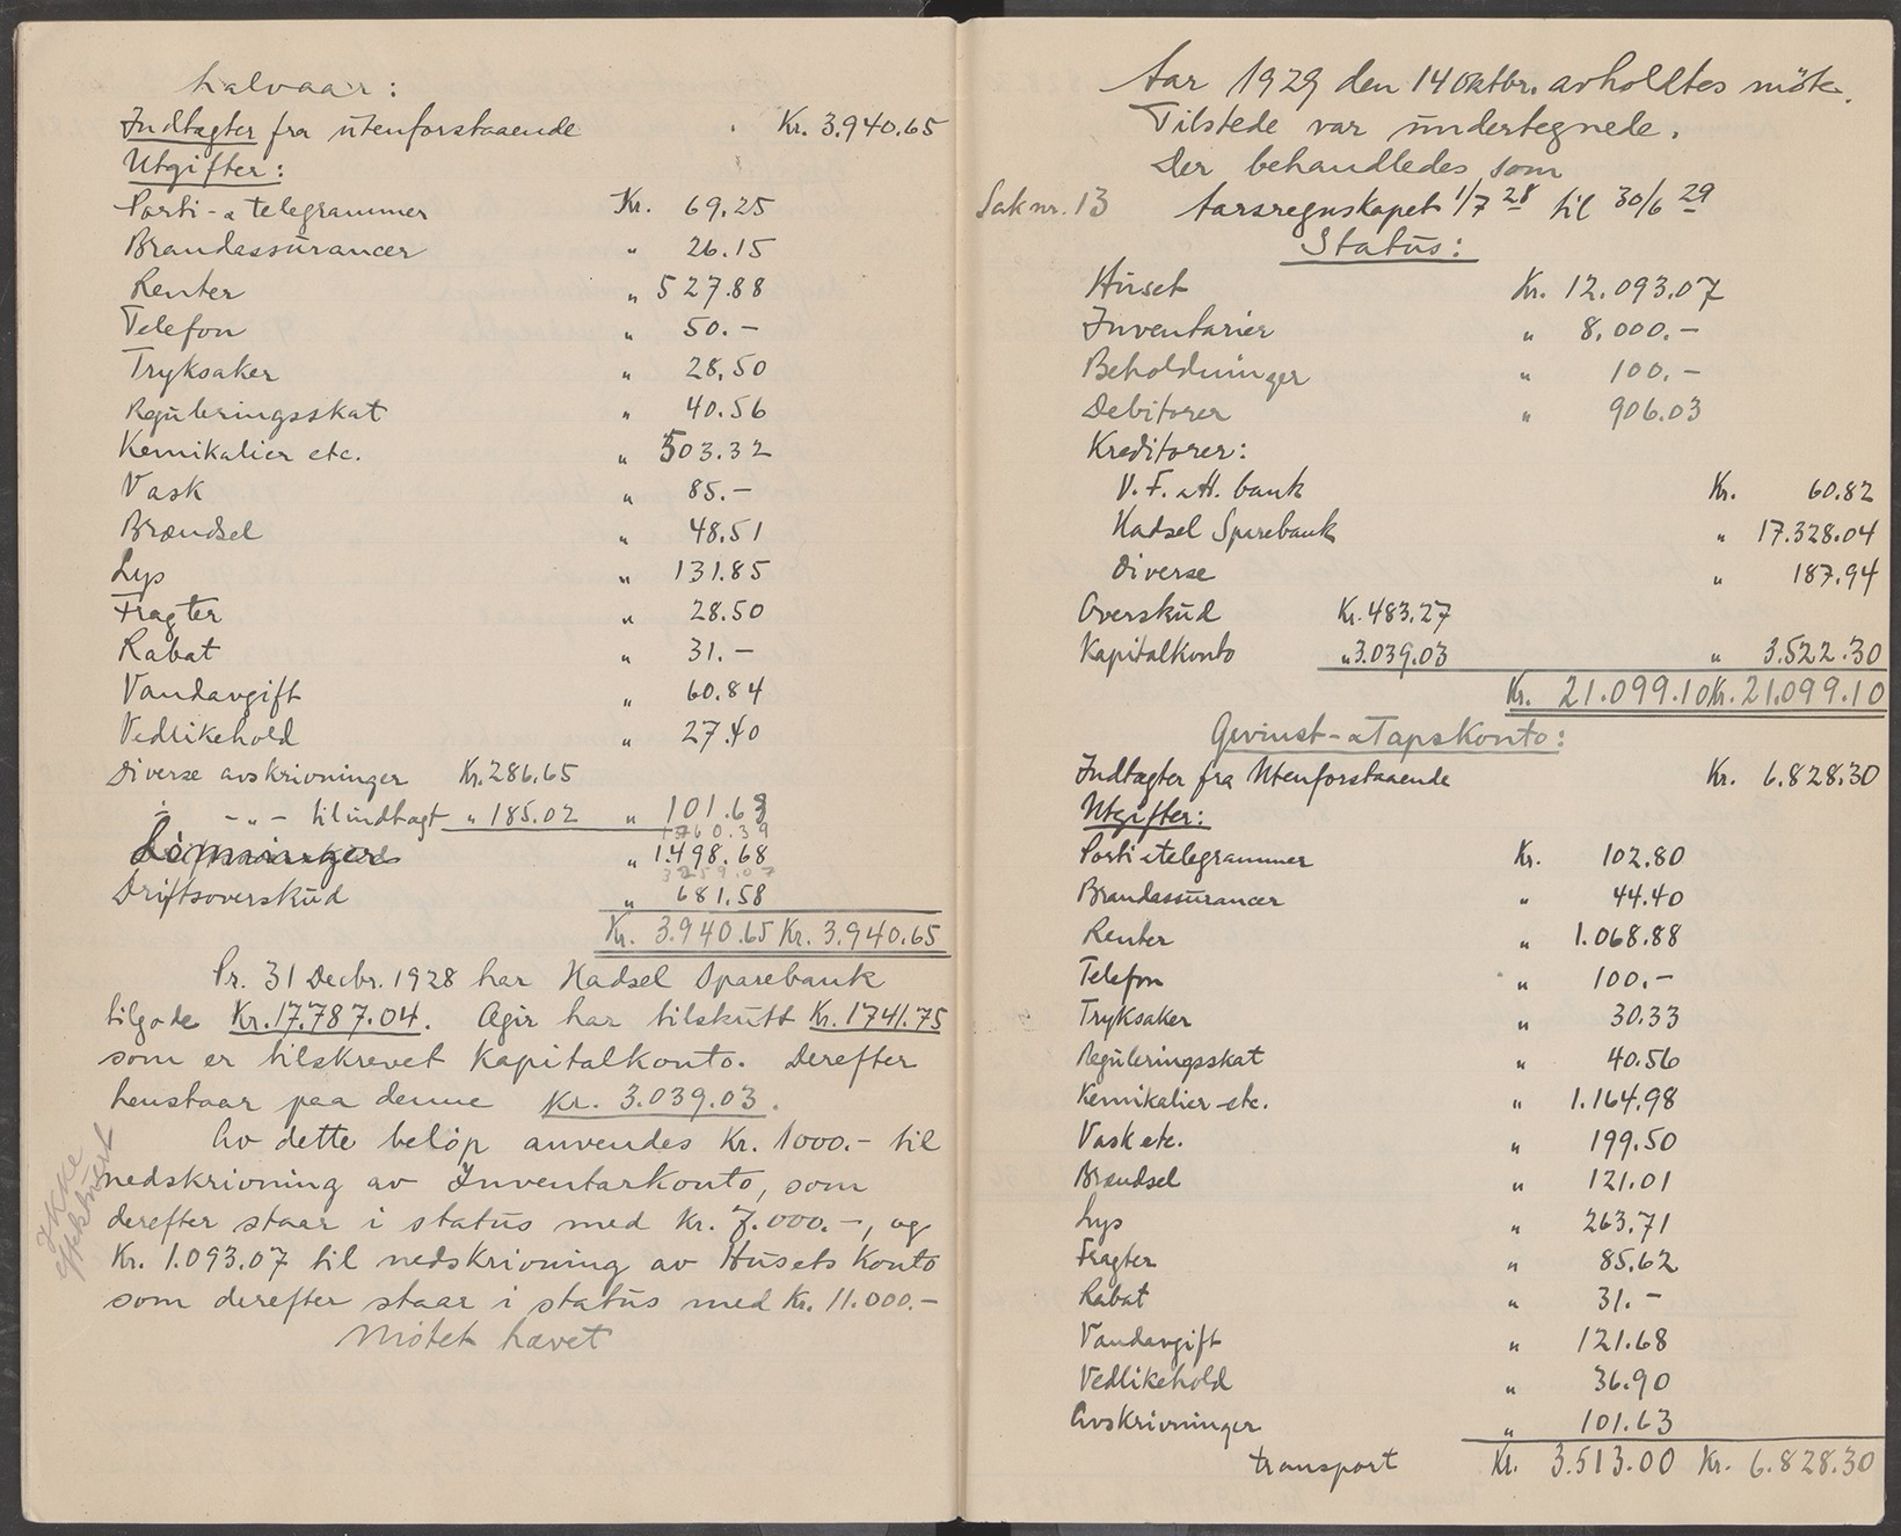 halvaar:
Indtægter fra utenforstaaende Kr. 3.940.65
Utgifter:
Porti- & telegrammer Kr. 69.25
Brandassurancer " 26.15
Renter " 527.88
Telefon " 50.-
Tryksaker " 28.50
Reguleringsskat " 40.56
Kemikalier etc. " 503.32
Vask " 85.-
Brændsel " 48.51
Lys " 131.85
Fragter " 28.50
Rabat " 31.-
Vandavgift " 60.84
Vedlikehold " 27.40
Diverse avskrivninger Kr. 286.65
÷ - " - til indtægt " 185.02 " 101.63
1760.39
Lønninger " 1.498.68
3259.07
Driftsoverskud " 681.58
Kr. 3.940.65 Kr. 3.940.65
Pr. 31 Decbr. 1928 har Hadsel Sparebank
tilgode Kr. 17.787.04. Ægir har tilskutt Kr. 1741.75
som er tilskrevet Kapitalkonto. Derefter
henstaar paa denne Kr. 3.039.03.
Av dette beløp anvendes Kr. 1000.- til
nedskrivning av Inventarkonto, som
derefter staar i status med Kr. 7.000.-, og
Kr. 1.093.07 til nedskrivning av Husets Konto
som derefter staar i status med Kr. 11.000.-
Møtet hævet
Ikke
effektuert
Aar 1929 den 14 oktbr. avholdtes møte.
Tilstede var undertegnede.
Der behandledes som
Sak nr. 13 Aarsregnskapet 1/7 28 til 30/6 29
Status:
Huset Kr. 12.093.07
Inventarier " 8.000.-
Beholdninger " 100.-
Debitorer " 906.03
Kreditorer:
V. F. & H. bank Kr. 60.82
Hadsel Sparebank " 17.328.04
Diverse " 187.94
Overskud Kr. 483.27
Kapitalkonto " 3.039.03 " 3.522.30
Kr. 21.099.10 Kr. 21.099.10
Gevinst- & Tapskonto:
Indtægter fra Utenforstaaende Kr. 6.828.30
Utgifter:
Porti & telegrammer Kr. 102.80
Brandassurancer " 44.40
Renter " 1.068.88
Telefon " 100.-
Tryksaker " 30.33
Reguleringsskat " 40.56
Kemikalier etc. " 1.164.98
Vask etc. " 199.50
Brændsel " 121.01
Lys " 263.71
Fragter " 85.62
Rabat " 31.-
Vandavgift " 121.68
Vedlikehold " 36.90
Avskrivninger " 101.63
transport Kr. 3.513.00 Kr. 6.828.30